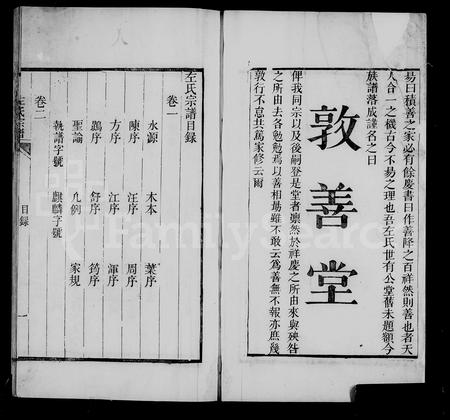 易曰積善之家必有餘慶書曰作善降之百祥然則善也者天
人合一之機古今不易之理也吾左氏世有公堂舊未題額今
族譜落成謹名之曰
敦善堂
俾我同宗以及後嗣登是堂者凛然於祥慶之所由來與殃咎
之所由去各勉勉焉以善相勖雖不敢云為善無不報亦庶幾
敦行不怠共篤家修云爾
左氏宗譜目錄
卷一
水源 木本 葉序
陳序 汪序 周序
方序 江序 渾序
鷞序 舒序 筠序
聖諭 凡例 家規
執譜字號 麒麟字號
卷二
左氏宗譜
目錄
FamilySearch